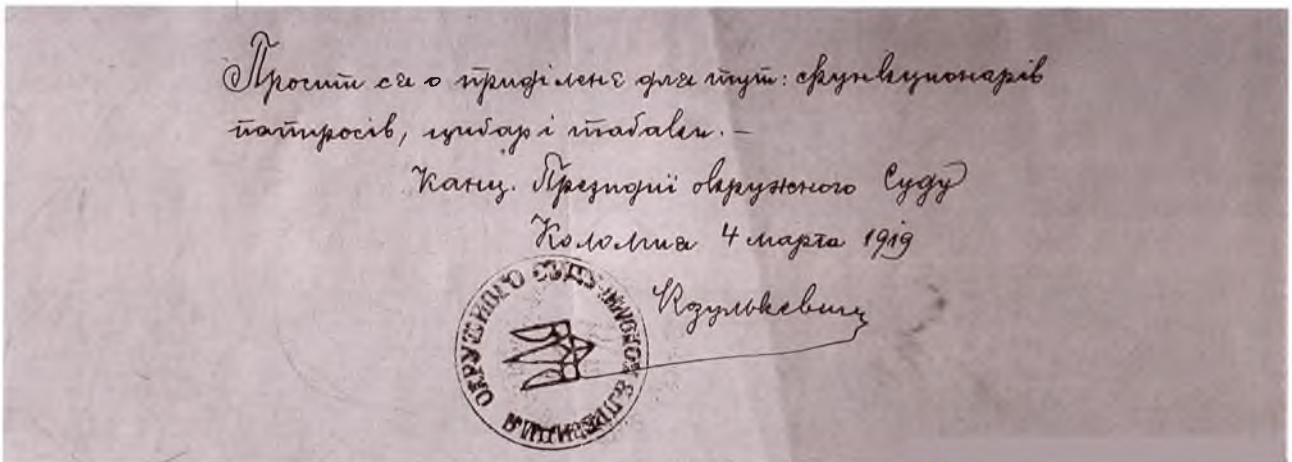 Просит ся о приділенє для тут: функціонарів
папіросів, цигар і табаки. –
Канц. Президиї окружного Суду
Коломия 4 марта 1919
Кзулькевич
ПРЕЗИДИЯ ОКРУЖНОГО СУДУ В КОЛОМИЇ